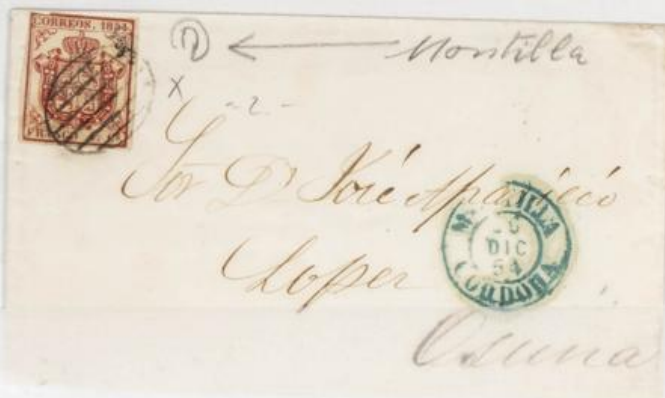 CORREOS. 1854
Montilla
X
- 2 -
Sor Dn José Aparicio
MONTILLA
DIC
54
CORDOBA
Lopez
Osuna